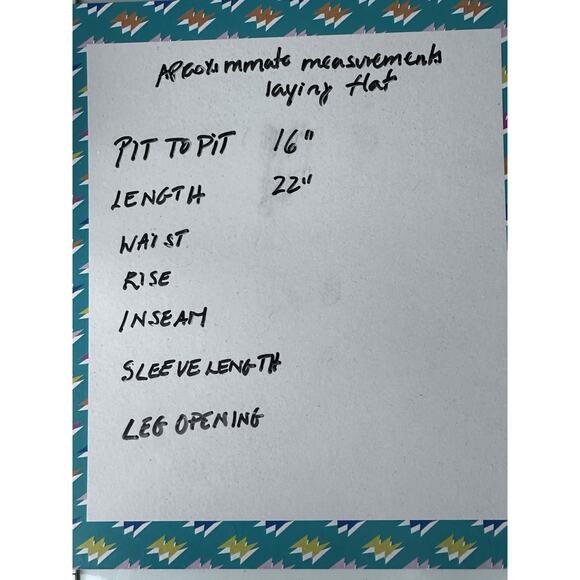 Approximmate measurements
laying flat
PIT TO PIT 16"
LENGTH 22"
WAIST
RISE
INSEAM
SLEEVE LENGTH
LEG OPENING